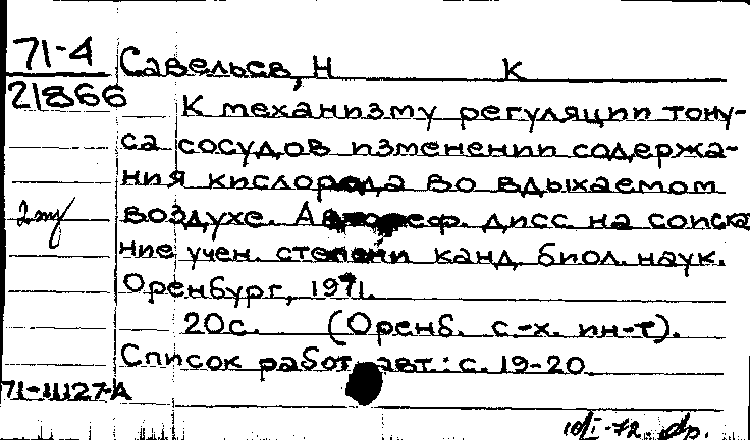 71-4
21866
Савельев, Н К
К механизму регуляции тону-
са сосудов изменении содержа-
ния кислорода во вдыхаемом
воздухе. Автореф. дисс. на соиска
ние учен. степени канд. биол. наук.
Оренбург, 1971.
20с. (Оренб. с.-х. ин-т).
Список работ авт.: с. 19-20.
71-11127-А